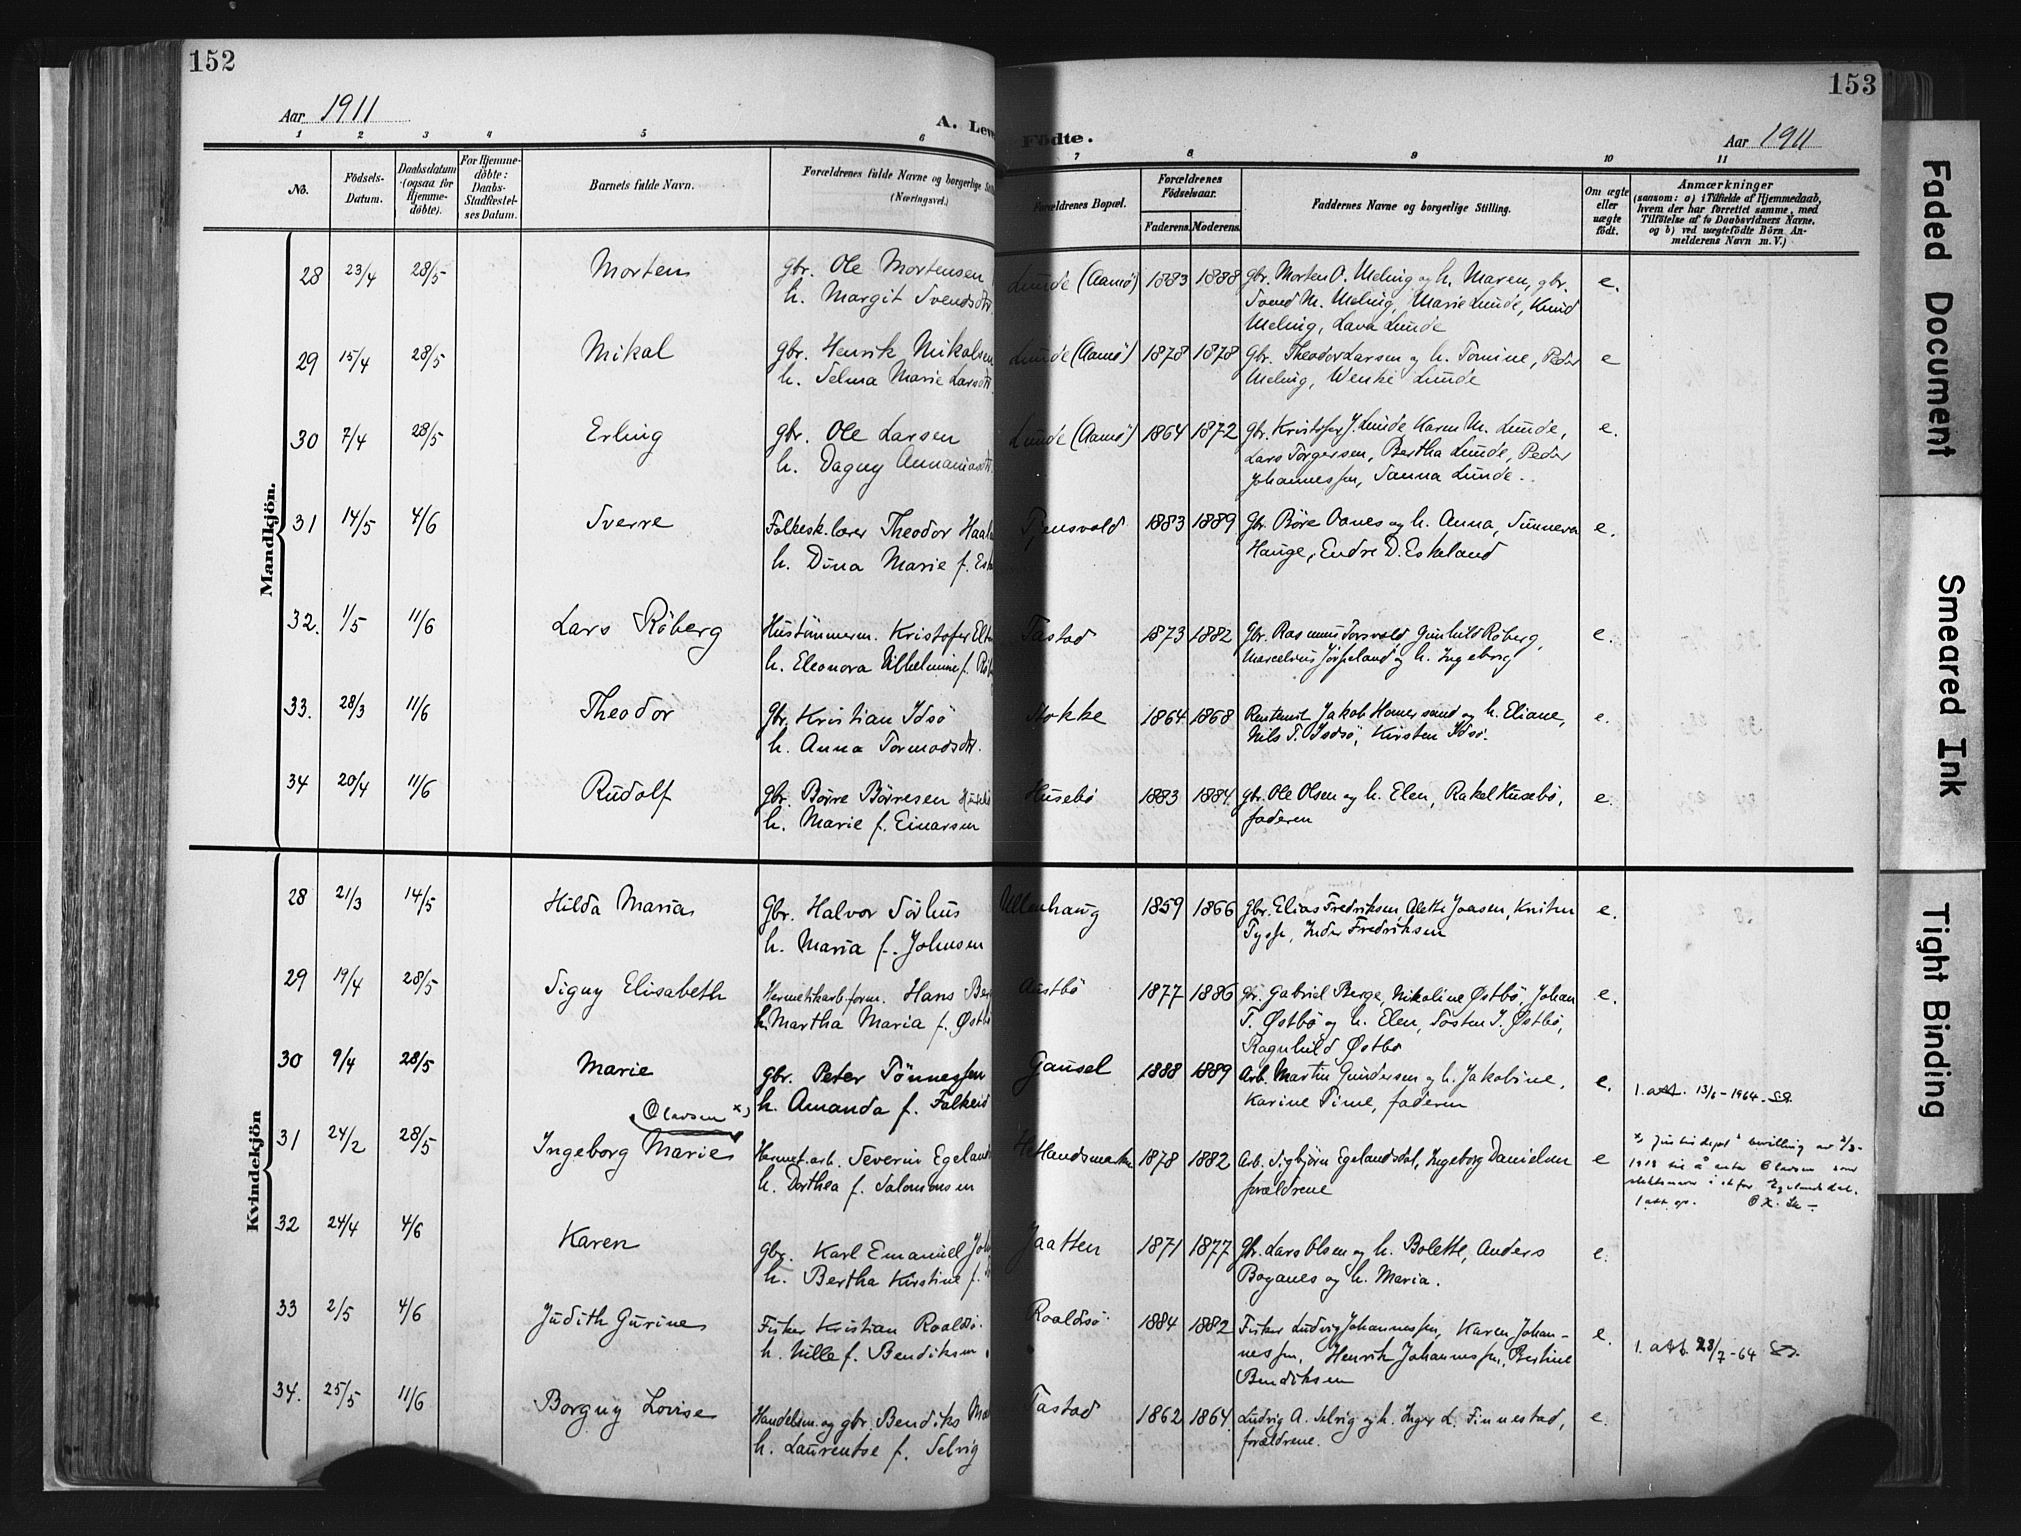 152
Aar 1911
A. Leve
1 2 3 4 5 6
No.
Födsels-
Datum.
Daabsdatum
(ogsaa for
Hjemme-
døbte).
For Hjemme-
døbte:
Daabs-
Stadfæstel-
ses Datum.
Barnets fulde Navn.
Forældrenes fulde Navne og borgerlige Still
(Næringsvei.)
Mandkjön.
28 23/4 28/5 Morten gbr. Ole Mortensen
h. Margit Svendsdtr.
29 15/4 28/5 Mikal gbr. Henrik Mikalsen
h. Selma Marie Larsdtr
30 7/4 28/5 Erling gbr. Ole Larsen
h. Dagny Annaniasdtr.
31 14/5 4/6 Sverre Folkesk.lærer Theodor Haal
h. Dina Marie f. Esk
32. 1/5 11/6 Lars Röberg Hustömmerm. Kristofer Elt
h. Eleonora Vilhelmine f. Rö
33. 28/3 11/6 Theodor gbr. Kristian Idsö
h. Anna Tormodsdtr.
34 20/4 11/6 Rudolf gbr. Börre Börresen Husebö
h. Marie f. Einarsen
Kvindekjön
28 21/3 14/5 Hilda Maria Gbr. Halvor Sörhus
h. Maria f. Johnsen
29 19/4 28/5 Signy Elisabeth Hermetikarb.form. Hans Ber
h. Martha Maria f. Östb
30 9/4 28/5 Marie gbr. Peter Tönnessen
h. Amanda f. Falkeid
Olavsen x)
31 24/2 28/5 Ingeborg Marie Hermet.arb. Severin Egeland
h. Dorthea f. Salomonsen
32 24/4 4/6 Karen gbr. Karl Emanuel Joh
h. Bertha Kirstine f.
33 2/5 4/6 Judith Gurine Fisker Kristian Roaldsö.
h. Nille f. Bendiksen
34. 25/5 11/6 Borgny Lovise Handelsm. og gbr. Bendiks
h. Laurentse f. Selvig
153
Födte.
Aar 1911
7 8 9 10 11
Forældrenes Bopæl.
Forældrenes
Födselsaar.
Faderens. Moderens.
Faddernes Navne og borgerlige Stilling.
Om ægte
eller
uægte
født.
Anmærkninger
(saasom: a) i Tilfælde af Hjemmedaab,
hvem der har forrettet samme, med
Tilføielse af to Daabsvidners Navne,
og b) ved uægtefödte Börn An-
melderens Navn m. V.)
Lunde (Aamö) 1883 1888 gbr. Morten O. Meling og h. Maren, gbr. e.
Svend M. Meling, Marie Lunde, Knud
Meling, Lava Lunde
Lunde (Aamö) 1878 1878 Gbr. Theodor Larsen og h. Tomine, Peder e
Meling, Wenke Lunde
Lunde (Aamö) 1864 1872 Gbr. Kristofer J. Lunde Karen M. Lunde, e.
Lars Torgersen, Bertha Lunde, Peder
Johannessen, Sanna Lunde.
Tjensvold 1883 1889 Gbr. Böre Oanes og h. Anna, Sunneva e.
Hauge, Endre D. Eskeland
Tastad 1873 1882 Gbr. Rasmus Torsvold Gunhild Röberg, e.
Marcelius Jörpeland og h. Ingeborg
Stokke 1864 1868 Jakob Homersand og h. Eliane, e.
Nils T. Idsö, Kirsten Idsö.
Husebö 1883 1884. gbr. Ole Olsen og h. Elen, Rakel Husebö, e.
faderen
Ullenhaug 1859 1866 gbr. Elias Fredriksen, Alette Joasen, e.
Tysse, Inder Fredriksen
Austbö 1877 1886 gbr. Gabriel Berge, Nikoline Østbö, Johan e.
T. Østbö og h. Elen, Tosten J. Østbö,
Ragnhild Østbö
Gausel 1888 1889 Arb. Martin Gundersen og h. Jakobine, e. 1. att. 13/6-1964.
Karine Time, faderen
Hetlandsmarken 1878 1882 Arb. Sigbjörn Egelandsdal, Ingeborg Danielsen e
forældrene
x) Justisdept's bevilling av
1918 til å anta Olavsen som
slektsnavn i st. for Egelandsdal.
1 att. op.
Jaatten 1871 1877 Gbr. Lars Olsen og h. Bolette, Anders e.
Boganes og h. Maria.
Roaldsö. 1884 1882 Fisker Ludvig Johannessen, Karen Johan- e. 1. att. 28/7-64
nessen, Henrik Johannessen, Bertine
Bendiksen
Tastad 1862 1864. Ludvig A. Selvig og h. Inger L. Finnestad, e.
forældrene.
Faded Document
Smeared Ink
Tight Binding